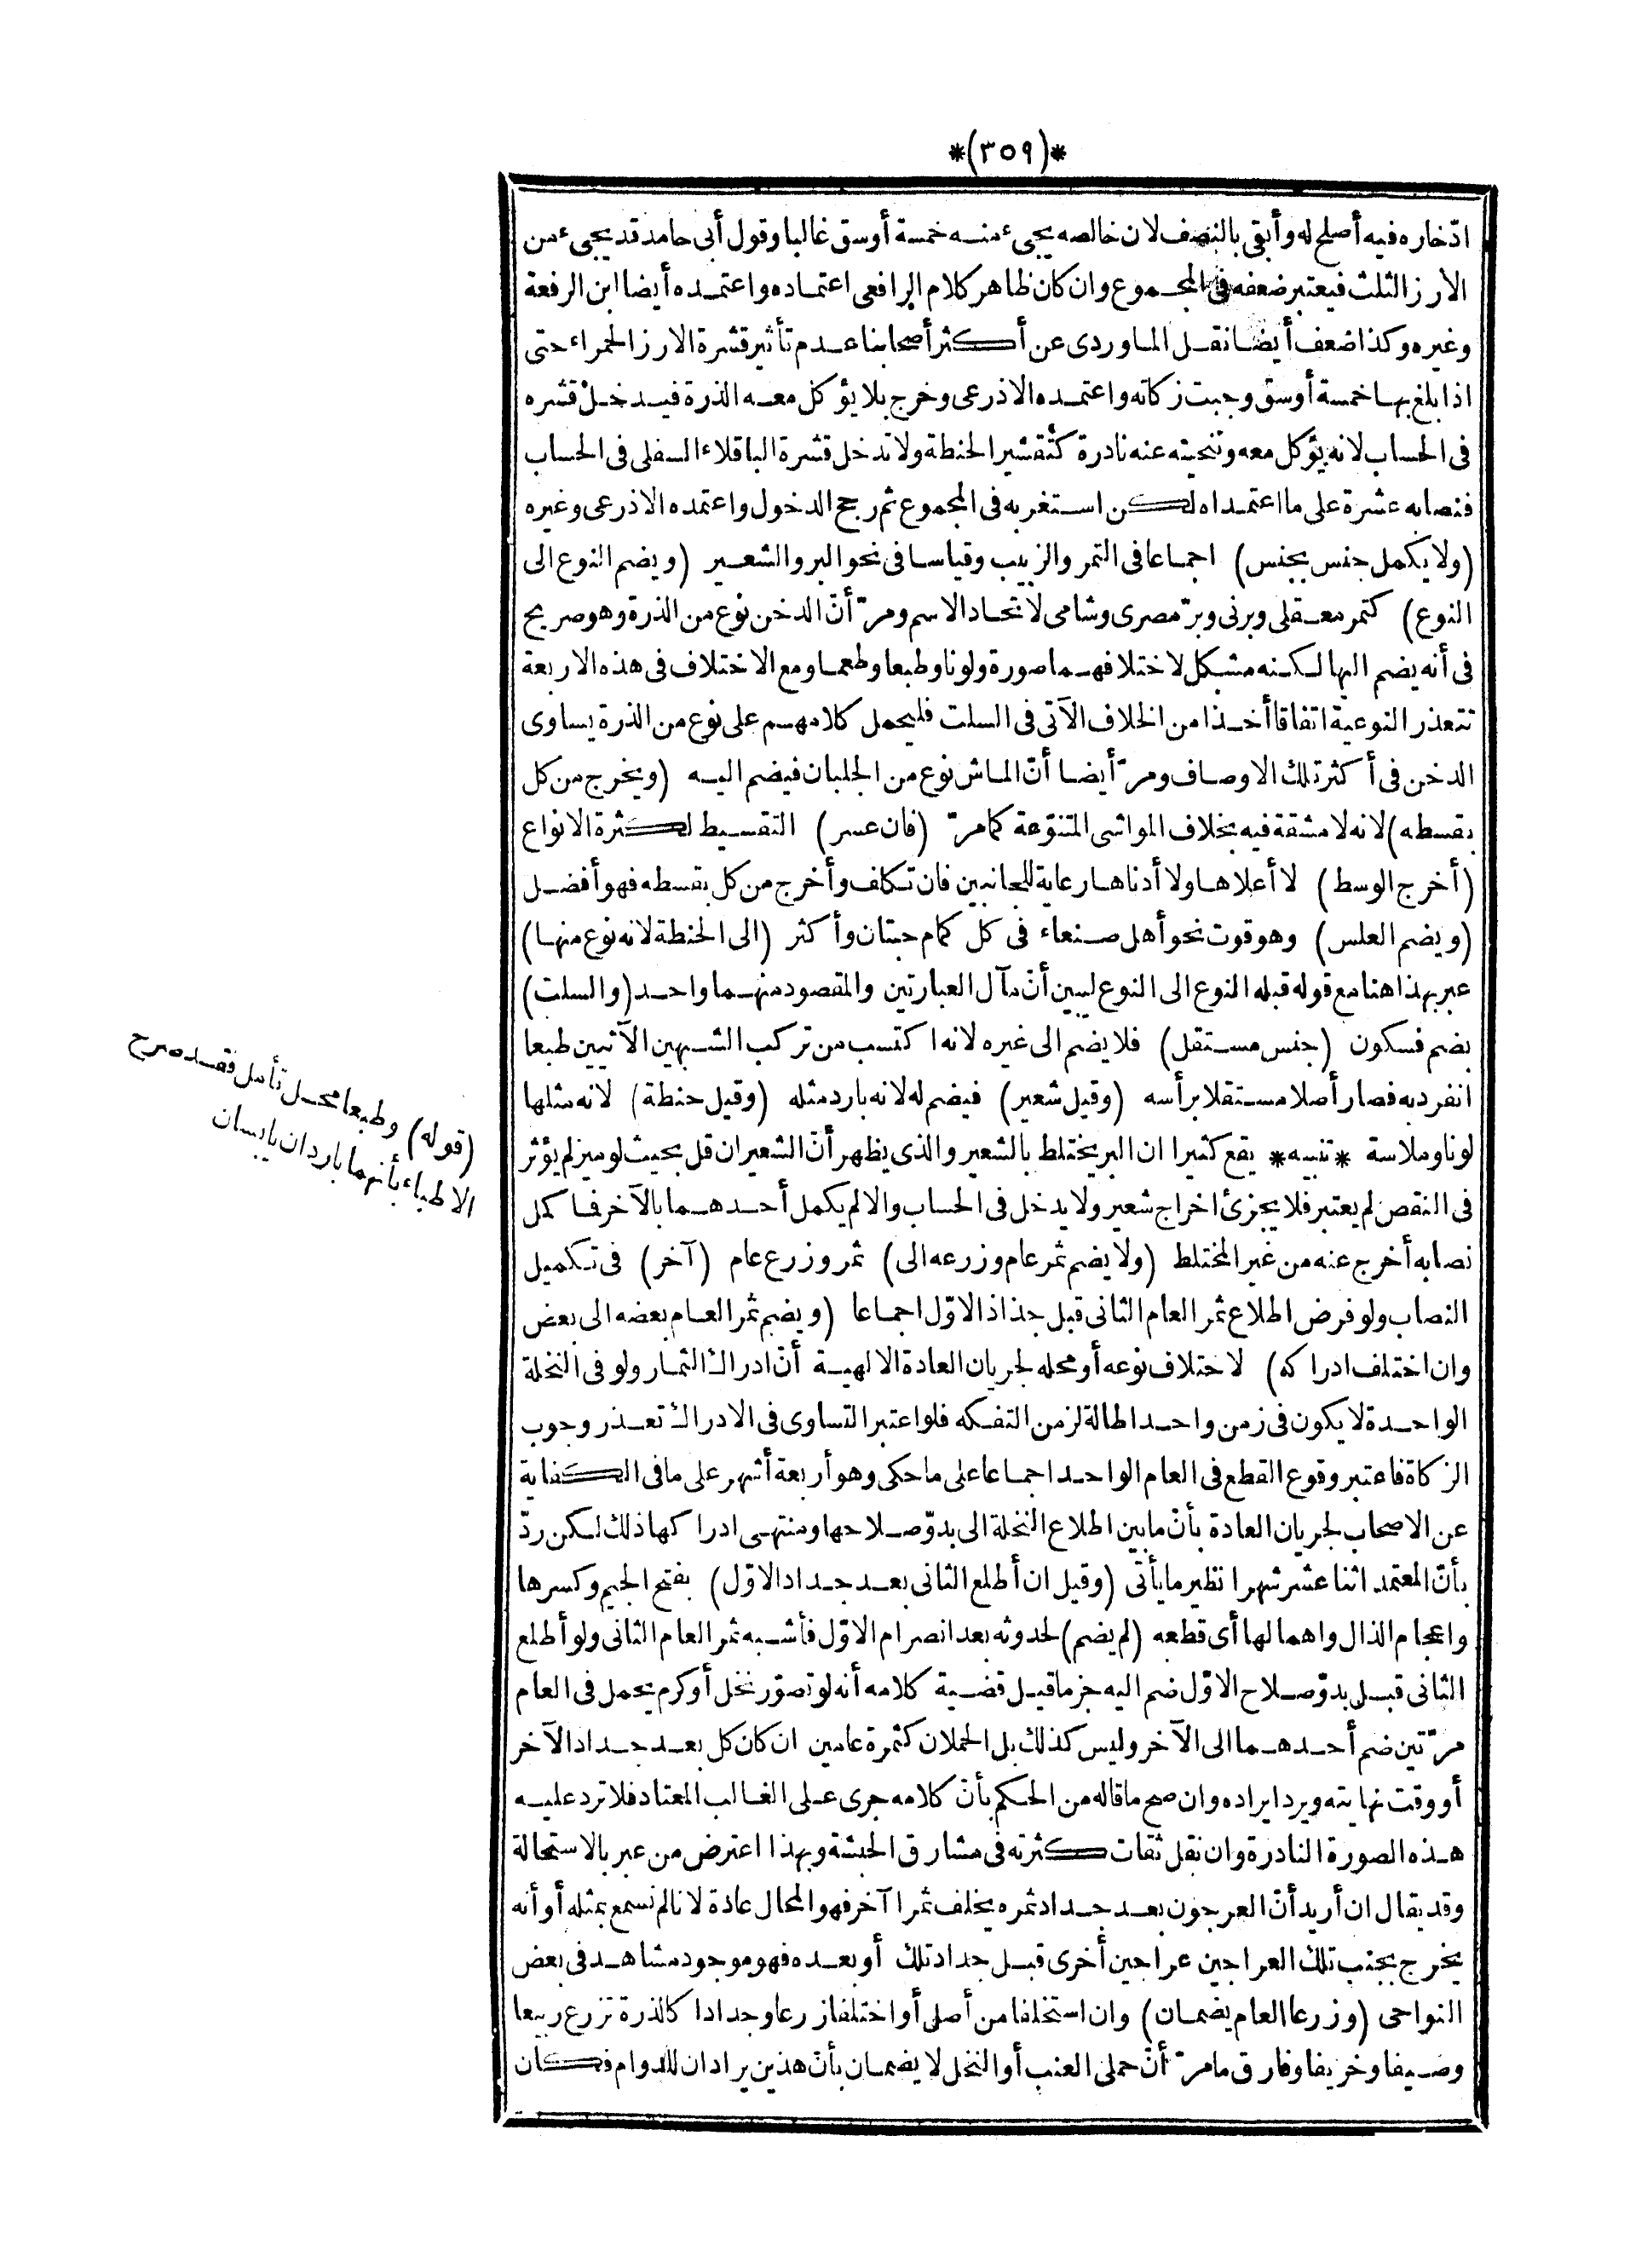 *(٣٥٩)*
ادّخاره فيه أصلح له وأبقى بالنصف لان خالصه يجىء منه خمسة أوسق غالبا وقول أبى حامد قد يجىء من
الارز الثلث فيعتبر ضعفه فى المجموع وان كان ظاهر كلام الرافعى اعتماده واعتمده أيضا ابن الرفعة
وغيره وكذا ضعف أيضا نقل الماوردى عن أكثر أصحابنا عدم تأثير قشرة الارز الحمراء حتى
اذا بلغ بها خمسة أوسق وجبت زكاته واعتمده الاذرعى وخرج بلا يؤكل معه الذرة فيدخل قشره
فى الحساب لانه يؤكل معه وتنحيته عنه نادرة كتقشير الحنطة ولا تدخل قشرة الباقلاء السفلى فى الحساب
فنصابه عشرة على ما اعتمداه لكن استغربه فى المجموع ثم رجح الدخول واعتمده الاذرعى وغيره
(ولا يكمل جنس بجنس) اجماعا فى التمر والزبيب وقياسا فى نحو البر والشعير (ويضم النوع الى
النوع) كتمر معقلى وبرنى وبرّ مصرى وشامى لاتحاد الاسم ومرّ أنّ الدخن نوع من الذرة وهو صريح
فى أنه يضم اليها لكنه مشكل لاختلافهما صورة ولونا وطبعا وطعما ومع الاختلاف فى هذه الاربعة
تتعذر النوعية اتفاقا أخذا من الخلاف الآتى فى السلت فليحمل كلامهم على نوع من الذرة يساوى
الدخن فى أكثر تلك الاوصاف ومرّ أيضا أنّ الماش نوع من الجلبان فيضم اليه (ويخرج من كل
بقسطه) لانه لا مشقة فيه بخلاف المواشى المتنوّعة كما مرّ (فان عسر) التقسيط لكثرة الانواع
(أخرج الوسط) لا أعلاها ولا أدناها رعاية للجانبين فان تكلف وأخرج من كل بقسطه فهو أفضل
(ويضم العلس) وهو قوت نحو أهل صنعاء فى كل كمام حبتان وأكثر (الى الحنطة لانه نوع منها)
عبر بهذا هنا مع قوله قبله النوع الى النوع ليبين أنّ مآل العبارتين والمقصود منهما واحد (والسلت)
بضم فسكون (جنس مستقل) فلا يضم الى غيره لانه اكتسب من تركب الشبهين الآتيين طبعا
انفرد به فصار أصلا مستقلا برأسه (وقيل شعير) فيضم له لانه بارد مثله (وقيل حنطة) لانه مثلها
لونا وملاسة *تنبيه* يقع كثيرا ان البر يختلط بالشعير والذى يظهر أنّ الشعير ان قل بحيث لو ميز لم يؤثر
فى النقص لم يعتبر فلا يجزئ اخراج شعير ولا يدخل فى الحساب والا لم يكمل أحدهما بالآخر فما كمل
نصابه أخرج عنه من غير المختلط (ولا يضم ثمر عام وزرعه الى) ثمر وزرع عام (آخر) فى تكميل
النصاب ولو فرض اطلاع ثمر العام الثانى قبل جذاذ الاوّل اجماعا (ويضم ثمر العام بعضه الى بعض
وان اختلف ادراكه) لاختلاف نوعه أو محله لجريان العادة الالهية أنّ ادراك الثمار ولو فى النخلة
الواحدة لا يكون فى زمن واحد اطالة لزمن التفكه فلو اعتبر التساوى فى الادراك تعذر وجوب
الزكاة فاعتبر وقوع القطع فى العام الواحد اجماعا على ما حكى وهو أربعة أشهر على ما فى الكفاية
عن الاصحاب لجريان العادة بأنّ ما بين اطلاع النخلة الى بدوّ صلاحها ومنتهى ادراكها ذلك لكن ردّ
بأنّ المعتمد اثنا عشر شهرا نظير ما يأتى (وقيل ان أطلع الثانى بعد جداد الاوّل) بفتح الجيم وكسرها
واعجام الذال واهمالها أى قطعه (لم يضم) لحدوثه بعد انصرام الاوّل فأشبه ثمر العام الثانى ولو أطلع
الثانى قبل بدوّ صلاح الاوّل ضم اليه جزما قيل قضية كلامه أنه لو تصوّر نخل أو كرم يحمل فى العام
مرّتين ضم أحدهما الى الآخر وليس كذلك بل الحملان كثمرة عامين ان كان كل بعد جداد الآخر
أو وقت نهايته ويرد ايراده وان صح ما قاله من الحكم بأنّ كلامه جرى على الغالب المعتاد فلا ترد عليه
هذه الصورة النادرة وان نقل ثقات كثرته فى مشارق الحبشة وبهذا اعترض من عبر بالاستحالة
وقد يقال ان أريد أنّ العرجون بعد جداد ثمره يخلف ثمرا آخر فهو المحال عادة لانا لم نسمع بمثله أو أنه
يخرج بجنب تلك العراجين عراجين أخرى قبل جداد تلك أو بعده فهو موجود مشاهد فى بعض
النواحى (وزرعا العام يضمان) وان استخلفا من أصل أو اختلفا زرعا وجدادا كالذرة تزرع ربيعا
وصيفا وخريفا وفارق ما مرّ أنّ حملى العنب أو النخل لا يضمان بأنّ هذين يرادان للدوام فكان
(قوله) وطبعا محل تأمل فقد صرح
الاطباء بأنهما باردان يابسان